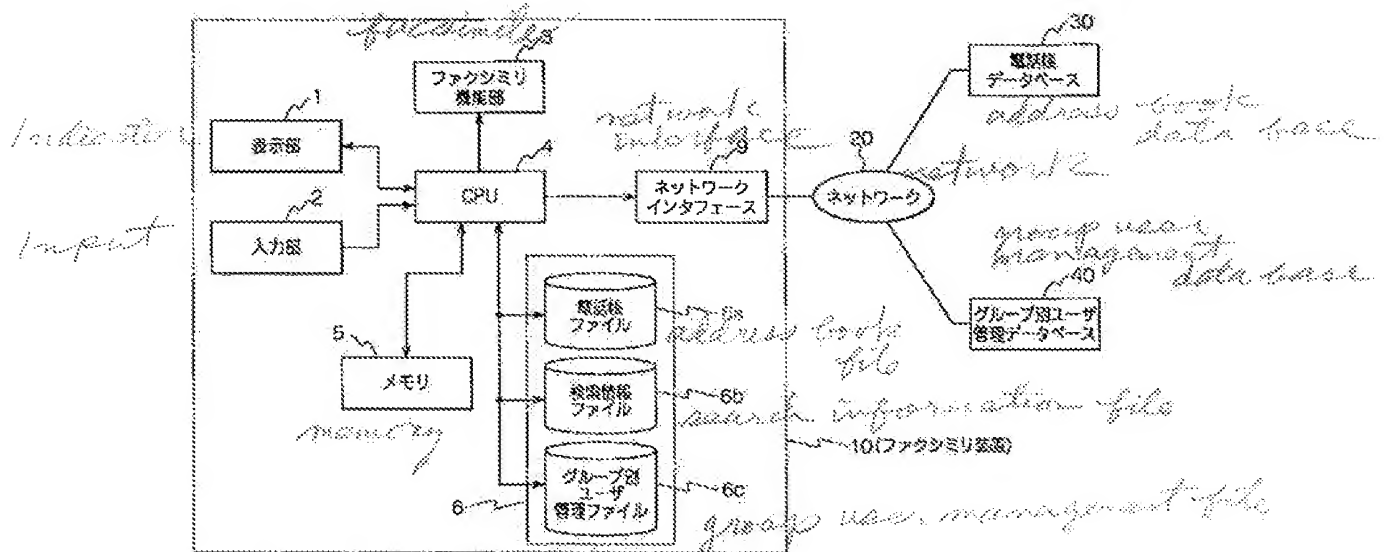 facsimile
3
ファクシミリ
機能部
1
表示部
Indicator
2
入力部
Input
4
CPU
network
interface
9
ネットワーク
インタフェース
20
ネットワーク
network
30
電話帳
データベース
address book
data base
group user
management
data base
40
グループ別ユーザ
管理データベース
5
メモリ
memory
電話帳
ファイル
6a
address book
file
検索情報
ファイル
6b
search information file
グループ別
ユーザ
管理ファイル
6c
6
10(ファクシミリ装置)
group use. management file